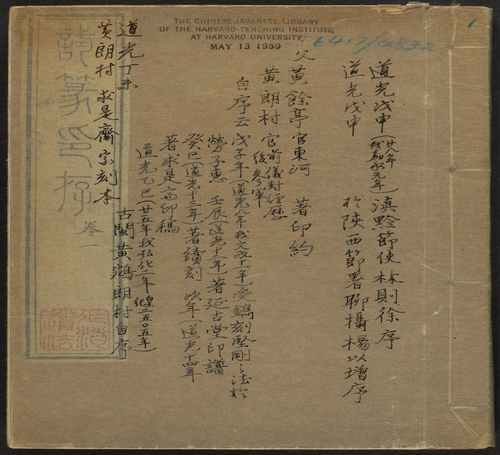 THE CHINESE-JAPANESE LIBRARY
OF THE HARVARD-YENCHING INSTITUTE
AT HARVARD UNIVERSITY
MAY 13 1959
1
道光戊申(廿八年 我嘉永元年) 滇黔節使林則徐序
道光戊申 於陝西節署聊攝楊以增序
父黃餘亭官東河 著印約
黃朗村 官前儀封經歷 後參軍
自序云 戊子年(道光八年我文政十一年)受鐫刻堅剛之法於
勞子惠 壬辰 道光十二年 著延古堂印譜
癸巳(道光十三年)著續刻 次年 道光十四年
著求是齋印稿
道光乙巳(廿五年我弘化二年 二五〇五年)
古閩黃 朗村自序
道光丁未
黃朗村 求是齋字刻本
篆印存 卷一